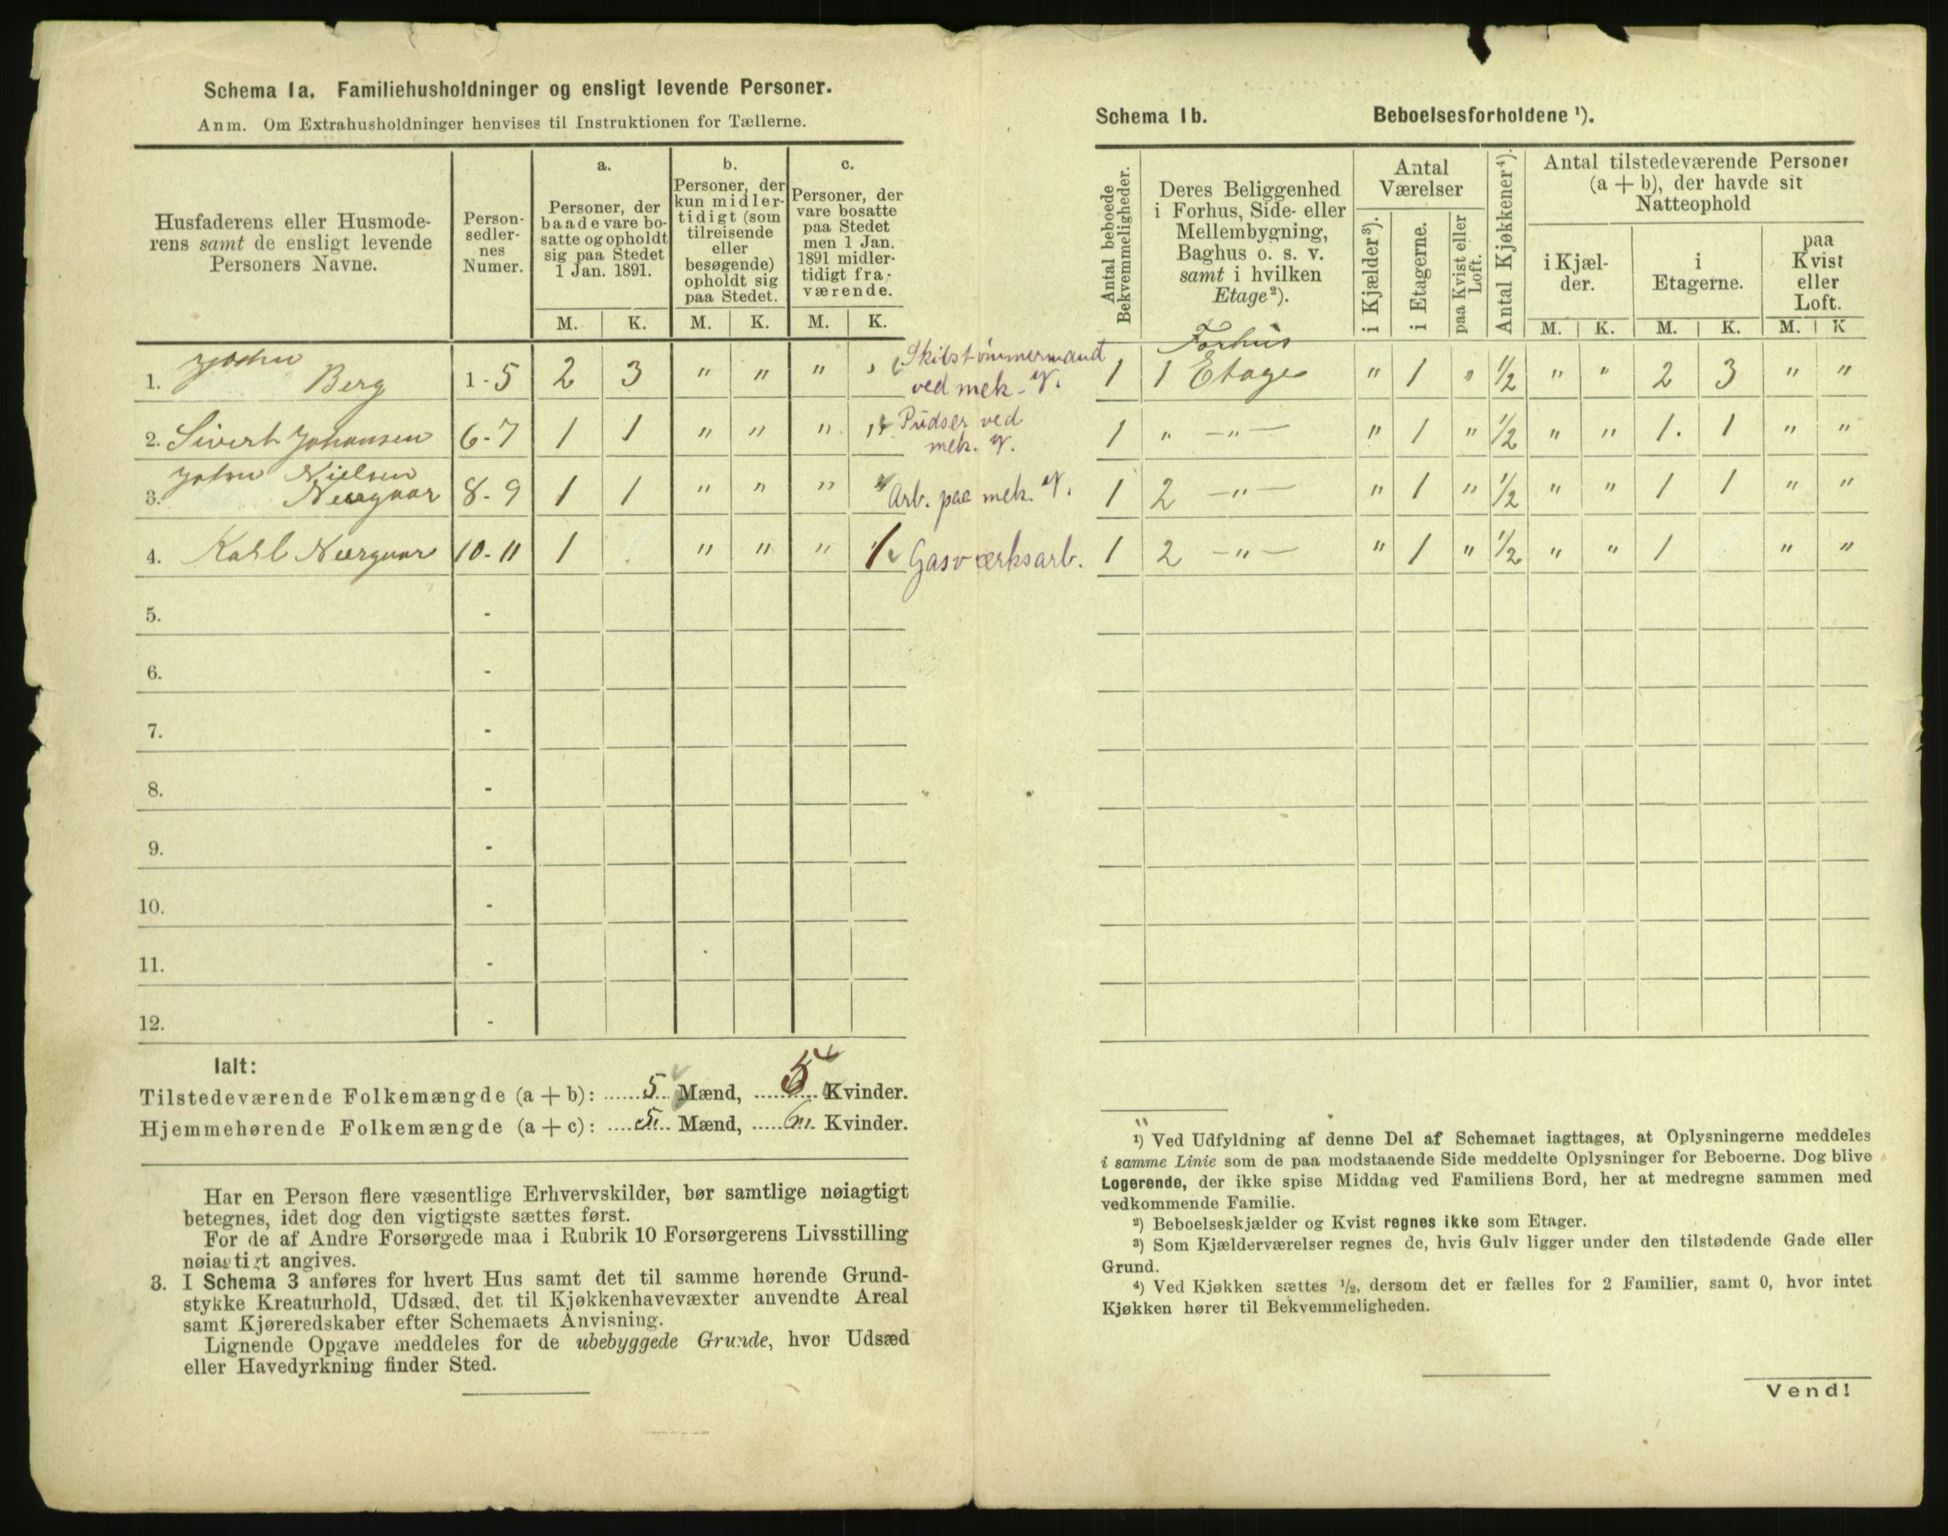 Schema 1a. Familiehusholdninger og ensligt levende Personer.
Anm. Om Extrahusholdninger henvises til Instruktionen for Tællerne.
Husfaderens eller Husmode-
rens samt de ensligt levende
Personers Navne.
Person-
sedler-
nes
Numer.
a.
Personer, der
baade vare bo-
satte og opholdt
sig paa Stedet
1 Jan. 1891.
b.
Personer, der
kun midler-
tidigt (som
tilreisende
eller
besøgende)
opholdt sig
paa Stedet.
c.
Personer, der
vare bosatte
paa Stedet
men 1 Jan.
1891 midler-
tidigt fra-
værende.
M. K. M. K. M. K.
1. John Berg 1-5 2 3 " " " Skibstømmermand
ved mek. V.
2. Sivert Johansen 6-7 1 1 " " " Pudser ved
mek. V.
3. John Nielsen
Neergaar 8-9 1 1 " " " Arb. paa mek. V.
4. Karl Neergaar 10-11 1 " " " 1 Gasværksarb.
5. -
6. -
7. -
8. -
9. -
10. -
11. -
12. -
Ialt:
Tilstedeværende Folkemængde (a + b): 5 Mænd, 5 Kvinder.
Hjemmehørende Folkemængde (a + c): 5 Mænd, 6 Kvinder.
Har en Person flere væsentlige Erhvervskilder, bør samtlige nøiagtigt
betegnes, idet dog den vigtigste sættes først.
For de af Andre Forsørgede maa i Rubrik 10 Forsørgerens Livsstilling
nøiagtigt angives.
3. I Schema 3 anføres for hvert Hus samt det til samme hørende Grund-
stykke Kreaturhold, Udsæd, det til Kjøkkenhavevæxter anvendte Areal
samt Kjøreredskaber efter Schemaets Anvisning.
Lignende Opgave meddeles for de ubebyggede Grunde, hvor Udsæd
eller Havedyrkning finder Sted.
Schema 1b. Beboelsesforholdene ¹).
Antal beboede
Bekvemmeligheder.
Deres Beliggenhed
i Forhus, Side- eller
Mellembygning,
Baghus o. s. v.
samt i hvilken
Etage²).
Antal
Værelser
i Kjælder³).
i Etagerne.
paa Kvist eller
Loft.
Antal Kjøkkener⁴).
Antal tilstedeværende Personer
(a + b), der havde sit
Natteophold
i Kjæl-
der.
i
Etagerne.
paa
Kvist
eller
Loft.
M. K. M. K. M. K
Forhus
1 1 Etage " 1 " ½ " " 2 3 " "
1 " —"— " 1 " ½ " " 1. 1 " "
1 2 —"— " 1 " ½ " " 1 1 " "
1 2 —"— " 1 " ½ " " 1 " "
¹) Ved Udfyldning af denne Del af Schemaet iagttages, at Oplysningerne meddeles
i samme Linie som de paa modstaaende Side meddelte Oplysninger for Beboerne. Dog blive
Logerende, der ikke spise Middag ved Familiens Bord, her at medregne sammen med
vedkommende Familie.
²) Beboelseskjælder og Kvist regnes ikke som Etager.
³) Som Kjælderværelser regnes de, hvis Gulv ligger under den tilstødende Gade eller
Grund.
⁴) Ved Kjøkken sættes ½, dersom det er fælles for 2 Familier, samt 0, hvor intet
Kjøkken hører til Bekvemmeligheden.
Vend!